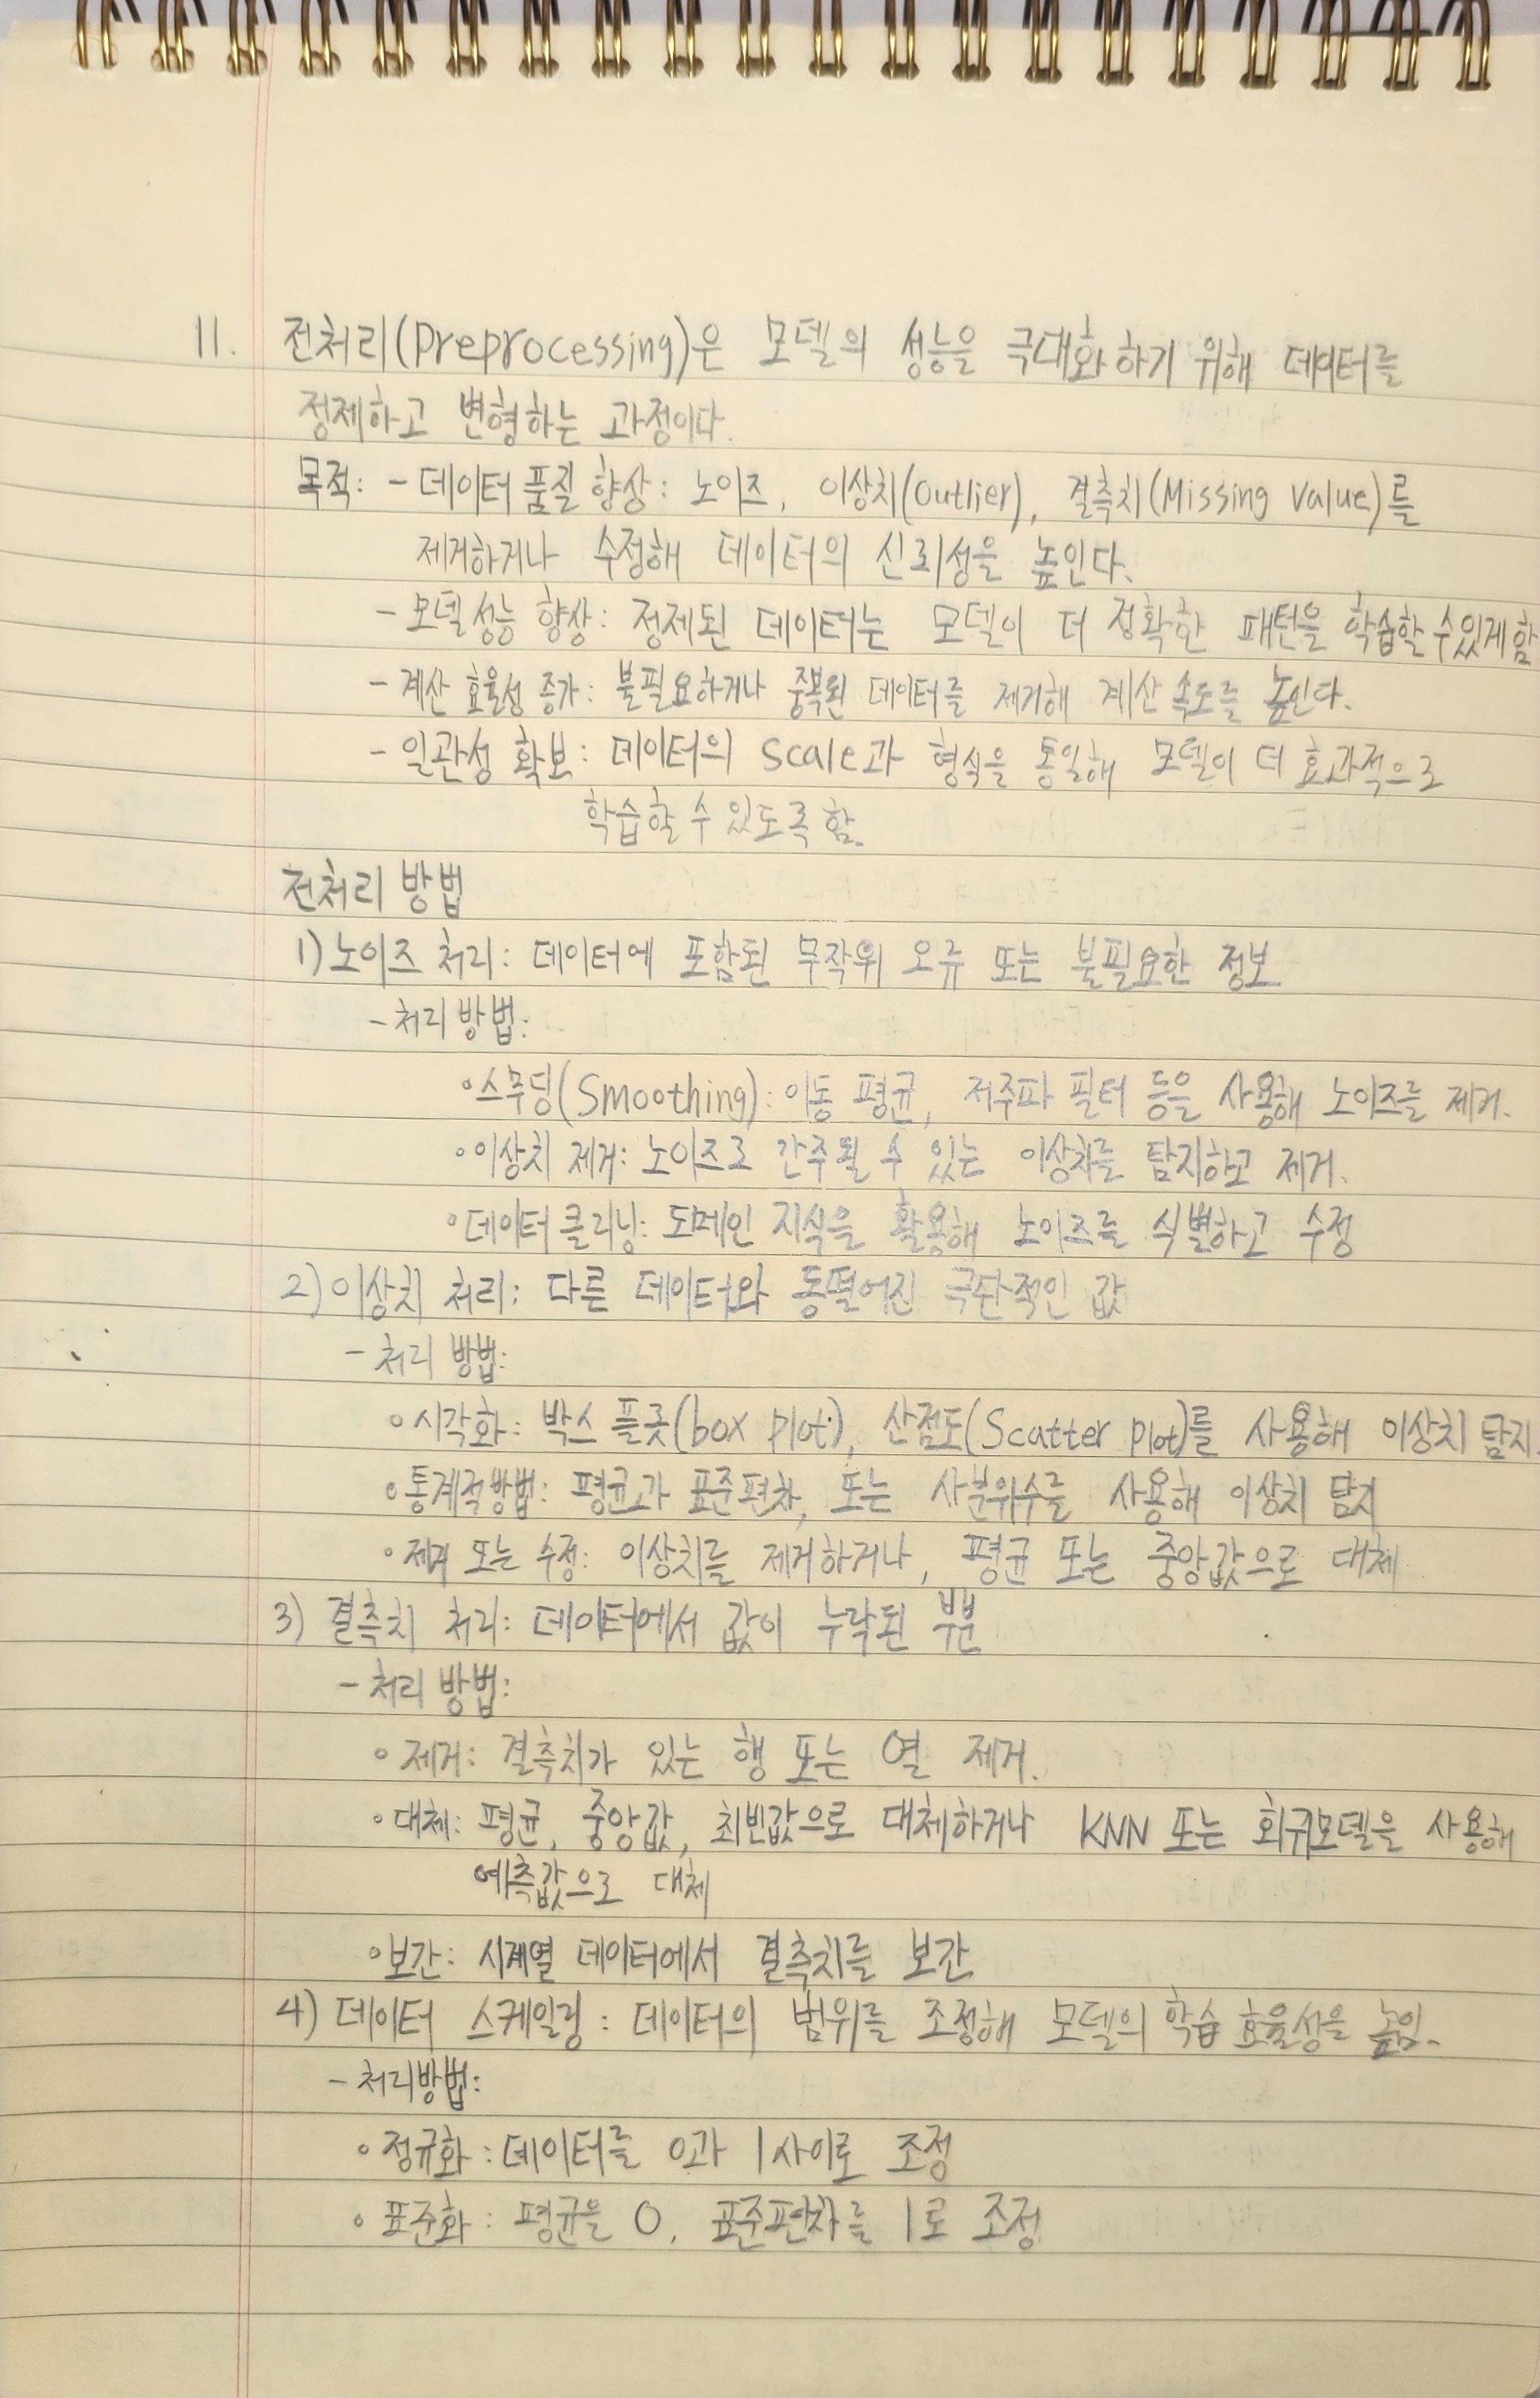 11. 전처리(Preprocessing)은 모델의 성능을 극대화하기 위해 데이터를
정제하고 변형하는 과정이다.
목적: - 데이터 품질 향상: 노이즈, 이상치(Outlier), 결측치(Missing Value)를
제거하거나 수정해 데이터의 신뢰성을 높인다.
- 모델 성능 향상: 정제된 데이터는 모델이 더 정확한 패턴을 학습할 수 있게 함
- 계산 효율성 증가: 불필요하거나 중복된 데이터를 제거해 계산 속도를 높인다.
- 일관성 확보: 데이터의 Scale과 형식을 통일해 모델이 더 효과적으로
학습할 수 있도록 함.
전처리 방법
1) 노이즈 처리: 데이터에 포함된 무작위 오류 또는 불필요한 정보
- 처리 방법:
◦스무딩(Smoothing): 이동 평균, 저주파 필터 등을 사용해 노이즈를 제거.
◦이상치 제거: 노이즈로 간주될 수 있는 이상치를 탐지하고 제거.
◦데이터 클리닝: 도메인 지식을 활용해 노이즈를 식별하고 수정
2) 이상치 처리: 다른 데이터와 동떨어진 극단적인 값
- 처리 방법:
◦시각화: 박스 플롯(box plot), 산점도(Scatter plot)를 사용해 이상치 탐지.
◦통계적방법: 평균과 표준편차, 또는 사분위수를 사용해 이상치 탐지
◦제거 또는 수정: 이상치를 제거하거나, 평균 또는 중앙값으로 대체
3) 결측치 처리: 데이터에서 값이 누락된 부분
- 처리 방법:
◦제거: 결측치가 있는 행 또는 열 제거.
◦대체: 평균, 중앙값, 최빈값으로 대체하거나 KNN 또는 회귀모델을 사용해
예측값으로 대체
◦보간: 시계열 데이터에서 결측치를 보간
4) 데이터 스케일링: 데이터의 범위를 조정해 모델의 학습 효율성을 높임.
- 처리방법:
◦정규화: 데이터를 0과 1사이로 조정
◦표준화: 평균을 0, 표준편차를 1로 조정